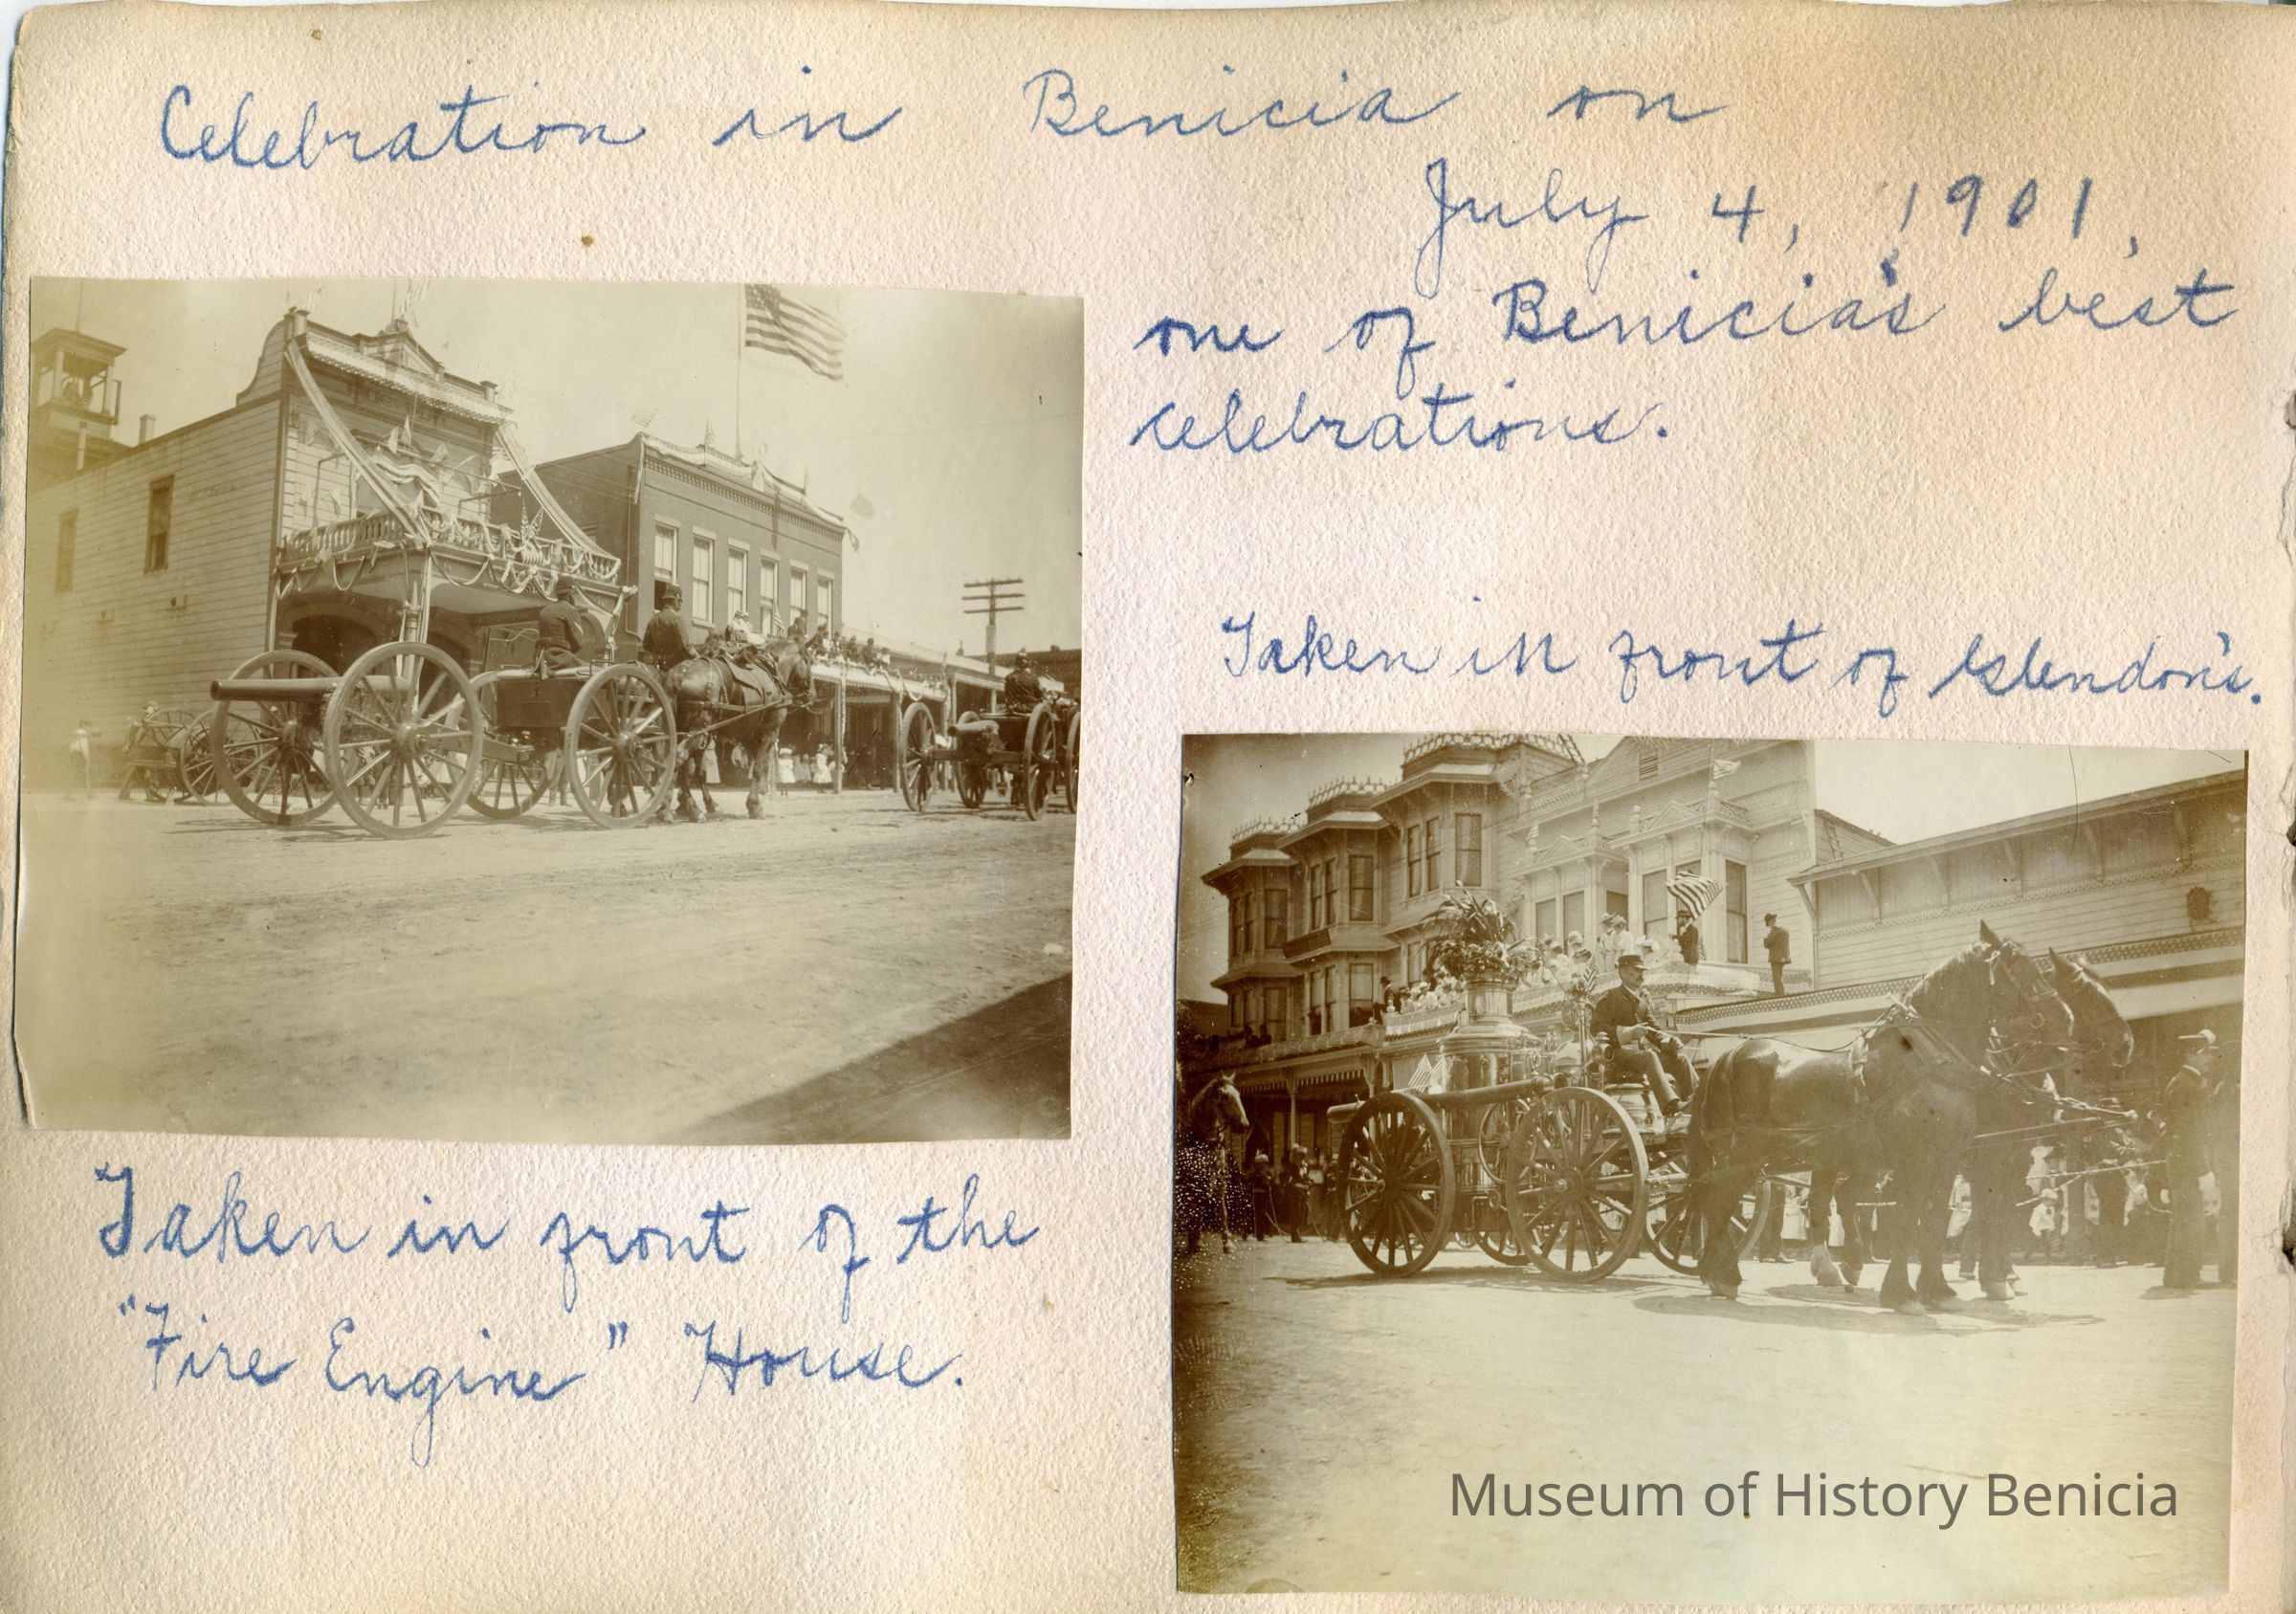 Celebration in Benicia on
July 4, 1901,
one of Benicia's best
celebrations.
Taken in front of Glendon's.
Taken in front of the
"Fire Engine" House.
Museum of History Benicia